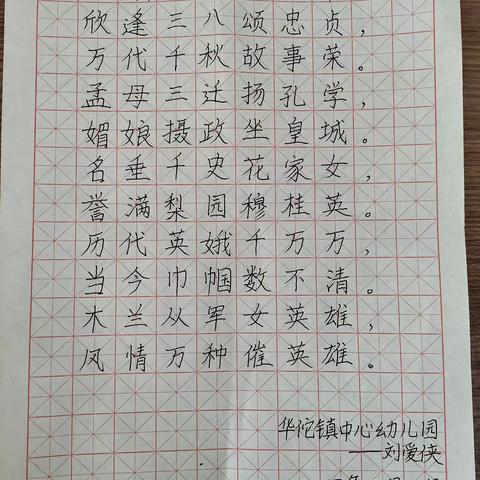 欣逢三八颂忠贞，
万代千秋故事荣。
孟母三迁扬孔学，
媚娘摄政坐皇城。
名垂千史花家女，
誉满梨园穆桂英。
历代英娥千万万，
当今巾帼数不清。
木兰从军女英雄，
风情万种催英雄。
华佗镇中心幼儿园
——刘爱侠